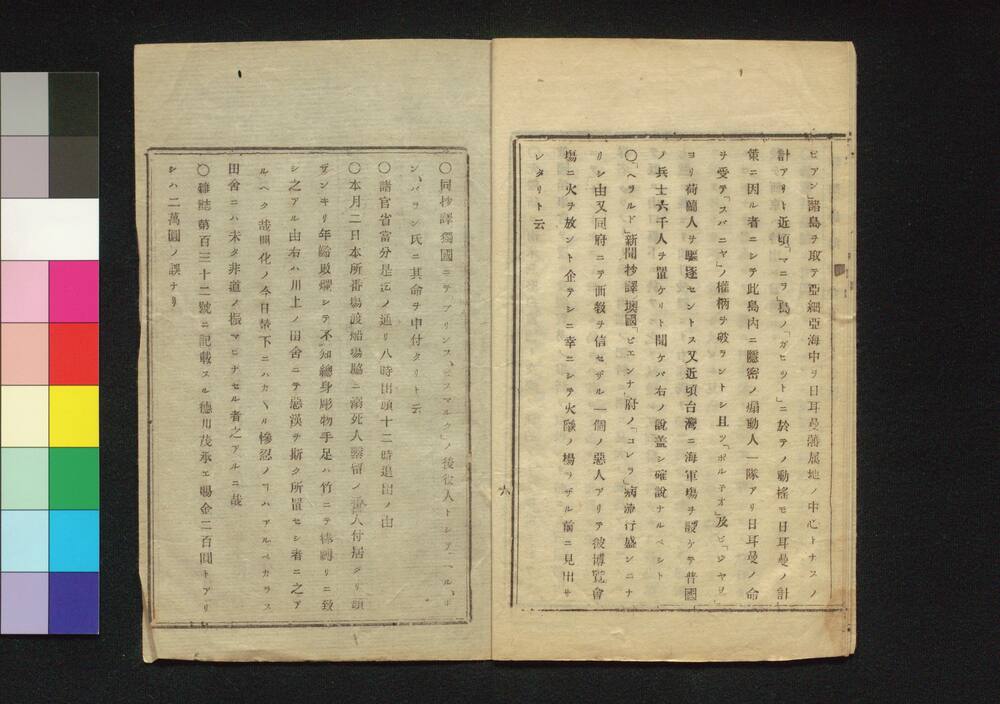 ピアン」諸島ヲ取テ亞細亞海中ヲ日耳曼藩屬地ノ中心トナスノ
計アリト近頃「マニラ」島ノ「ガヒット」ニ於テノ動搖モ日耳曼ノ計
策ニ因ル者ニシテ此島内ニ隱密ノ煽動人一隊アリ日耳曼ノ命
ヲ受テ「スバニヤ」ノ權柄ヲ破ラントシ且ツ「ボルチオ」及ビ「ジヤワ」
ヨリ荷蘭人ヲ驅逐セントス又近頃台灣ニ海軍塲ヲ設ケテ普國
ノ兵士六千人ヲ置ケリト聞ケバ右ノ說盖シ確說ナルベシト
〇「ヘラルド」新聞抄譯墺國「ビエンナ」府ノ「コレラ」病流行盛ンニナ
リシ由又同府ニテ西敎ヲ信セザル一個ノ惡人アリテ彼博覽會
塲ニ火ヲ放ント企テシニ幸ニシテ火ノ塲ラザル前ニ見出サ
レタリト云
六
〇同抄譯獨國ニテプリンス、ビスマルク」ノ後役人トシテヘル、ボ
ン、バラン氏ニ其命ヲ申付タリト云
〇諸官省當分是迄ノ通リ八時出頭十二時退出ノ由
〇本月二日本所番塲渡船塲脇ニ溺死人假留ノ番人付居タリ頭
ザンキリ年齡敗爛シテ不知總身彫物手足ハ竹ニテ縛リニ致
シ之アル由右ハ川上ノ田舍ニテ惡漢ヲ斯ク所置セシ者ニ之ア
ルベク哉開化ノ今日輦下ニハカヽル慘忍ノヿハアルベカラス
田舍ニハ未タ非道ノ振マヒナセル者之アルニ哉
〇雜誌第百三十二號ニ記載スル德川茂承エ賜金二百圓トアリ
シハ二萬圓ノ誤ナリ